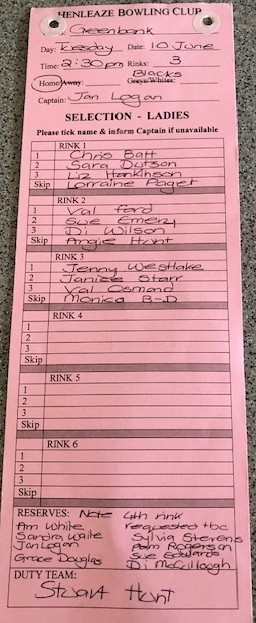 HENLEAZE BOWLING CLUB
Greenbank
Day: Tuesday Date: 10 June
Time: 2:30pm Rinks: 3
Blacks
Home/Away: Greys/Whites:
Captain: Jan Logan
SELECTION - LADIES
Please tick name & inform Captain if unavailable
RINK 1
1 Chris Batt
2 Sara Dutson
3 Liz Hankinson
Skip Lorraine Paget
RINK 2
1 Val Ford
2 Sue Emery
3 Di Wilson
Skip Angie Hunt
RINK 3
1 Jenny Westlake
2 Janice Starr
3 Val Osmond
Skip Monica B-D
RINK 4
1
2
3
Skip
RINK 5
1
2
3
Skip
RINK 6
1
2
3
Skip
RESERVES: Note 4th rink
Ann White requested tbc
Sandra Waite Sylvia Stevens
Jan Logan Pam Rogerson
Grace Douglas Sue Edwards
Di McCullough
DUTY TEAM:
Stuart Hunt